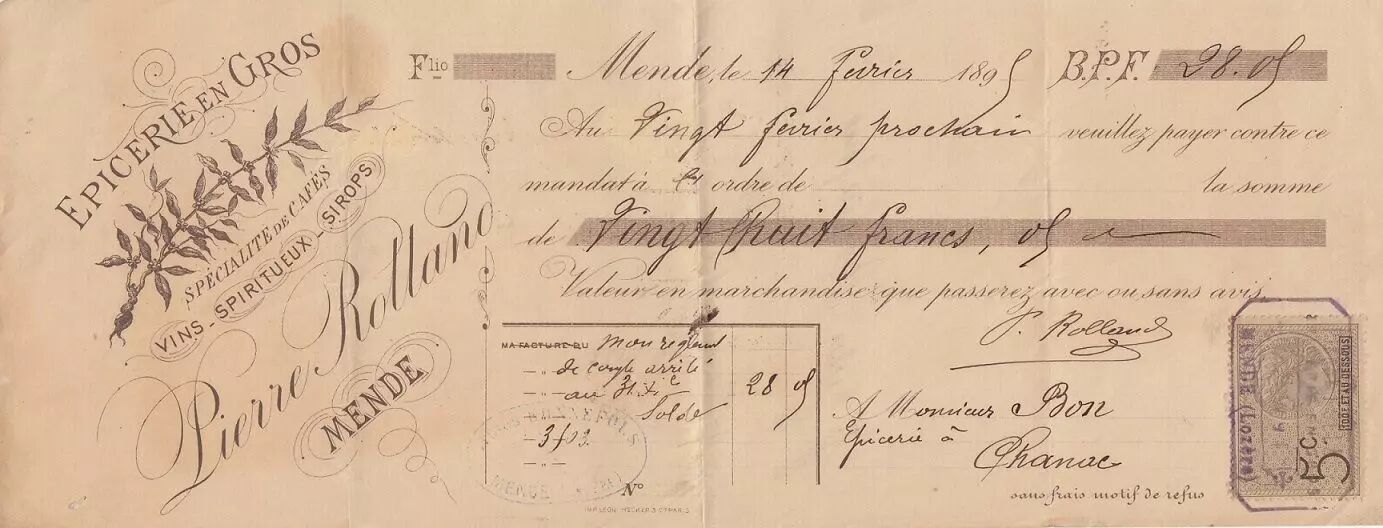 EPICERIE EN GROS
SPÉCIALITÉ DE CAFÉS
VINS - SPIRITUEUX - SIROPS
Pierre Rolland
MENDE
Flio
Mende, le 14 fevrier 1895 B.P.F. 28.05
Au Vingt fevrier prochain veuillez payer contre ce
mandat à ordre de la somme
de Vingt Huit francs, 05
Valeur en marchandise que passerez avec ou sans avis.
P. Rolland
MA FACTURE DU mon
de compte arrêté
au 31 Xe
Solde 28 05
MENDE
No
A Monsieur Bon
Epicerie à
Chanac
sans frais motif de refus
IMP. LEON HECKER & Cie PARIS
(LOZERE)
5c.
100F ET AU DESSOUS